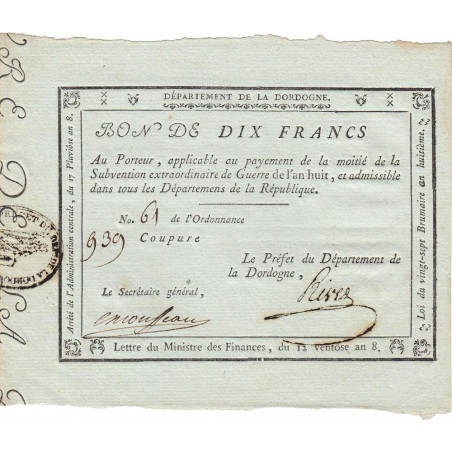 DÉPARTEMENT DE LA DORDOGNE.
BON DE DIX FRANCS
Au Porteur, applicable au payement de la moitié de la
Subvention extraordinaire de Guerre de l'an huit, et admissible
dans tous les Départemens de la République.
No. 61 de l'Ordonnance
939 Coupure
Le Préfet du Département de
la Dordogne,
Rivet
Le Secrétaire général,
Lettre du Ministre des Finances, du 12 ventose an 8.
Arrêté de l'Administration centrale, du 17 Pluviôse an 8.
Loi du vingt-sept Brumaire an huitième.